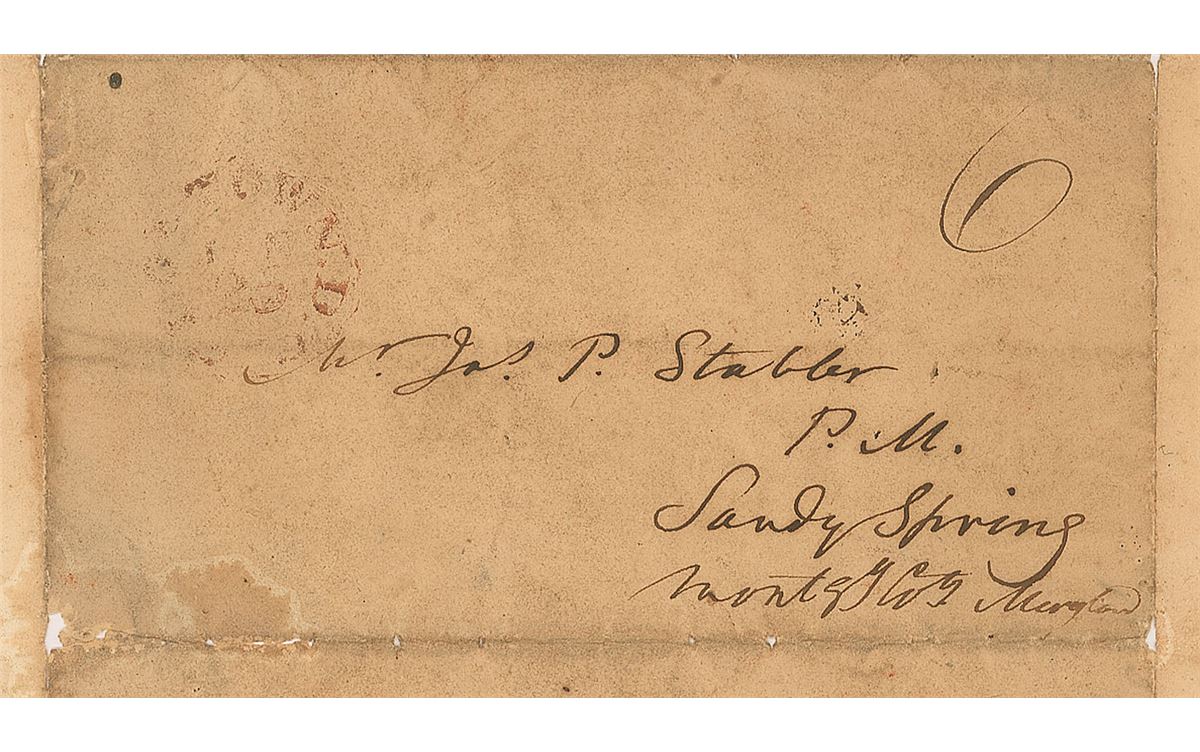 6
Mr. Jas. P. Stabler
P. M.
Sandy Spring
Montgy Coty Maryland